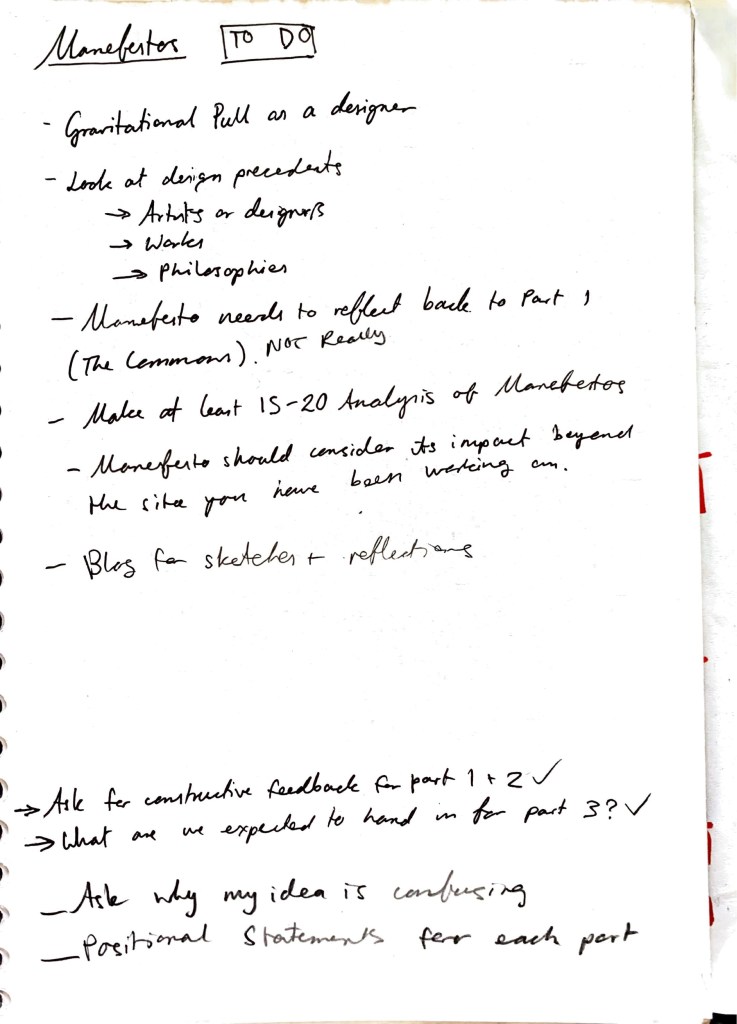 Manefestos TO DO
- Gravitational Pull as a designer
- Look at design precedents
→ Artists or designers
→ Works
→ Philosophies
- Manefesto needs to reflect back to Part 1
(The Commons). NOT Really
- Make at least 15-20 Analysis of Manefestos
- Manefesto should consider its impact beyond
the site you have been working on.
- Blog for sketches + reflections
→ Ask for constructive feedback for part 1 + 2 ✓
→ What are we expected to hand in for part 3? ✓
- Ask why my idea is confusing
- Positional Statements for each part